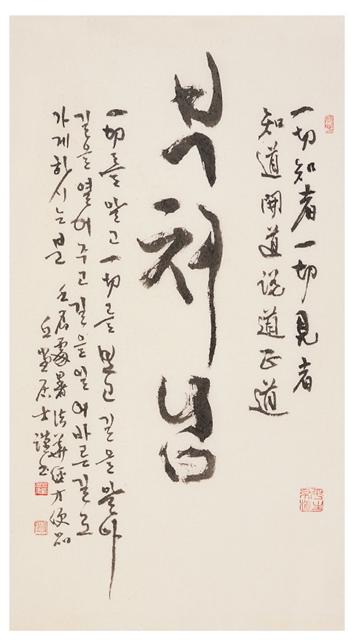 一切知者一切見者
知道開道說道正道
부처님
一切를 알고 一切를 보고 길을 알아
길을 열어 주고 길을 바른 길로
가게 하시는 분
處暑 法華經